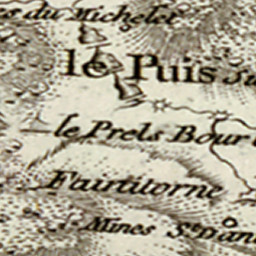 es du Michelet
le Puis Su
le Prels Bour
Fairtitorne
Mines St. Dan